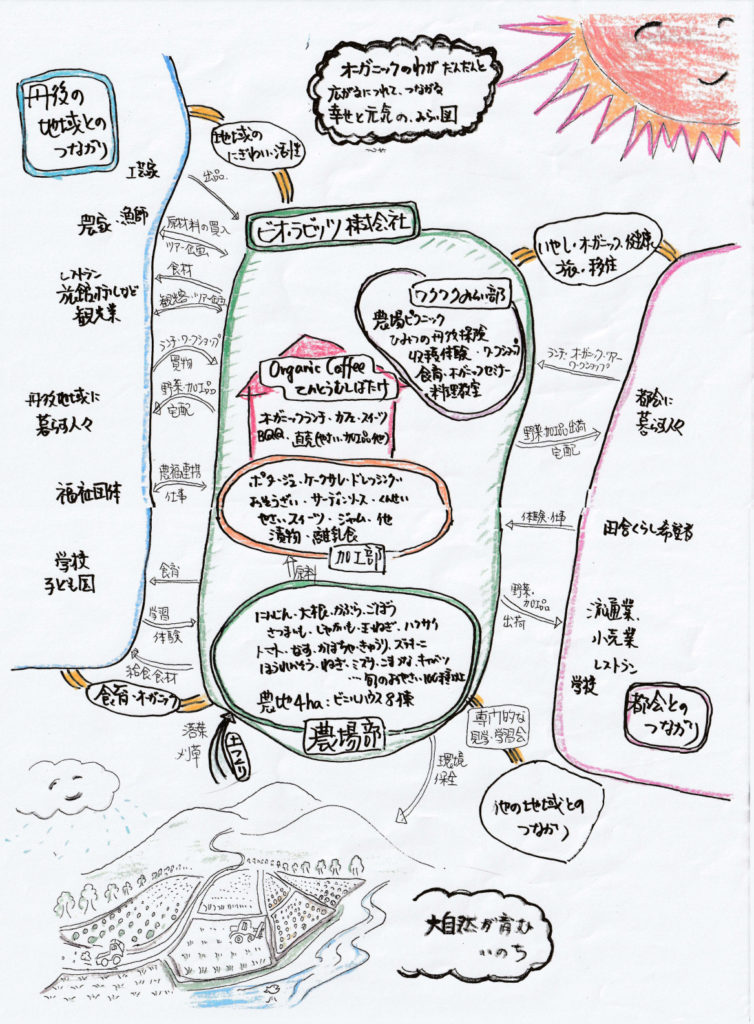 オーガニックのわが だんだんと
広がるにつれて、つながる
幸せと元気の、みらい図
丹後の
地域との
つながり
地域の
にぎわい・活性
工芸家
出品
農家・漁師
原材料の買入
ツアー企画
レストラン
旅館・宿など
観光業
食材
観光客・ツアー企画
ランチ・ワークショップ
買物
丹後地域に
暮らす人々
野菜・加工品
宅配
福祉団体
農福連携
仕事
学校
子ども園
食育
学習
体験
給食食材
食育・オーガニック
ビオ・ラビッツ 株式会社
ワクワクみらい部
農場ピクニック
ひみつの丹後探険
収穫体験・ワークショップ
食育・オーガニックセミナー
料理教室
Organic Coffee
てんとうむしばたけ
オーガニックランチ・カフェ・スイーツ
BBQ・直売(やさい、加工品他)
ポタージュ・ケークサレ・ドレッシング
おそうざい・サーディンソース・くんせい
やさいスイーツ・ジャム・他
漬物・離乳食
加工部
原料
にんじん・大根・かぶら・ごぼう
さつまいも・じゃがいも・玉ねぎ・ハクサイ
トマト・なす・かぼちゃ・きゅうり・ズッキーニ
ほうれんそう・ねぎ・ミズナ・こまつな・キャベツ
…旬のおやさい100種以上
農地4ha:ビニルハウス8棟
農場部
落葉
刈草
土づくり
環境
保全
いやし・オーガニック、健康、
旅・移住
ランチ・オーガニック・ツアー
ワークショップ
都会に
暮らす人々
野菜・加工品出荷
宅配
体験・仕事
田舎くらし希望者
野菜・
加工品
出荷
流通業、
小売業
レストラン
学校
都会との
つながり
専門的な
見学・学習会
他の地域との
つながり
大自然が育む
いのち